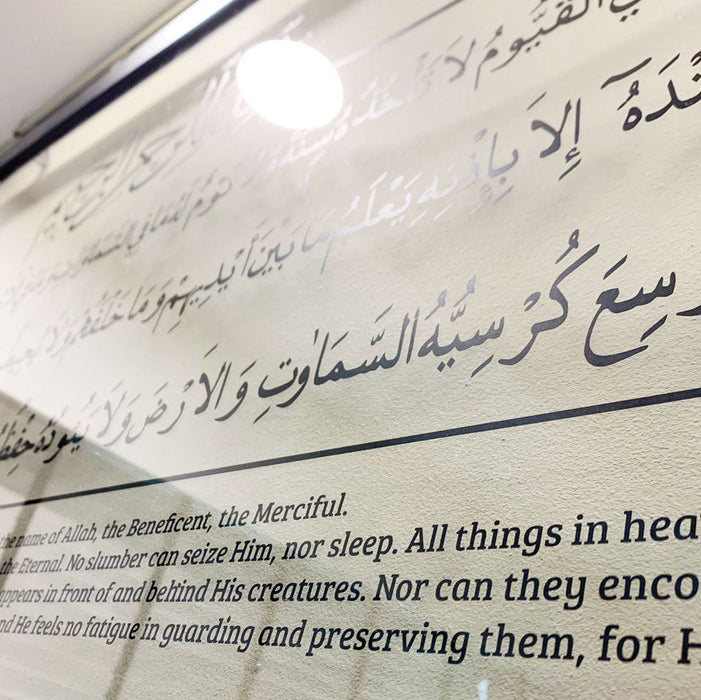 الْقَيُّومُ لَا تَأْخُذُهُ سِنَةٌ وَلَا نَوْمٌ
إِلَّا بِإِذْنِهِ يَعْلَمُ مَا بَيْنَ أَيْدِيهِمْ وَمَا خَلْفَهُمْ وَلَا
وَسِعَ كُرْسِيُّهُ السَّمَاوٰتِ وَالْاَرْضَ وَلَا يَئُودُهُ
name of Allah, the Beneficent, the Merciful.
the Eternal. No slumber can seize Him, nor sleep. All things in hea
appears in front of and behind His creatures. Nor can they enco
nd He feels no fatigue in guarding and preserving them, for H